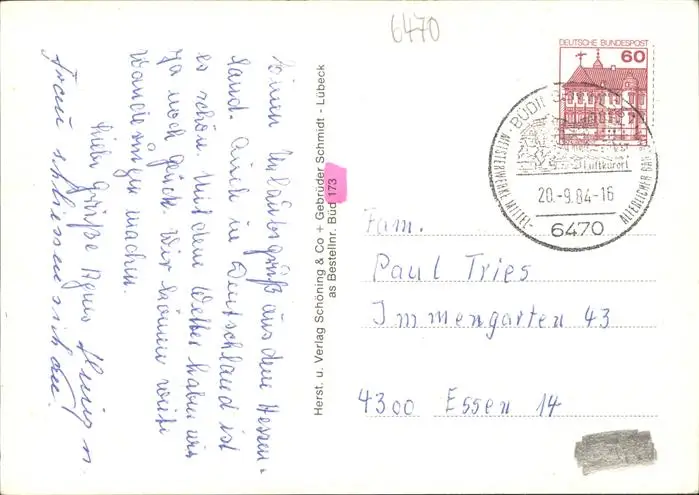 6470
DEUTSCHE BUNDESPOST
60
BÜDINGEN
Luftkurort
MEISTERWERKE MITTEL-
ALTERLICHER BAU
20.-9.84-16
6470
Einen Urlaubsgruß aus dem Hessen-
land. Auch in Deutschland ist
es schön. Mit dem Wetter haben wir
ja noch Glück. Wir können weite
Wanderungen machen.
Liebe Grüße Agnes
Frau schliessen sich an.
Herst. u. Verlag Schöning & Co + Gebrüder Schmidt - Lübeck
as Bestellnr. Büd 173
Fam.
Paul Tries
Immengarten 43
4300 Essen 14